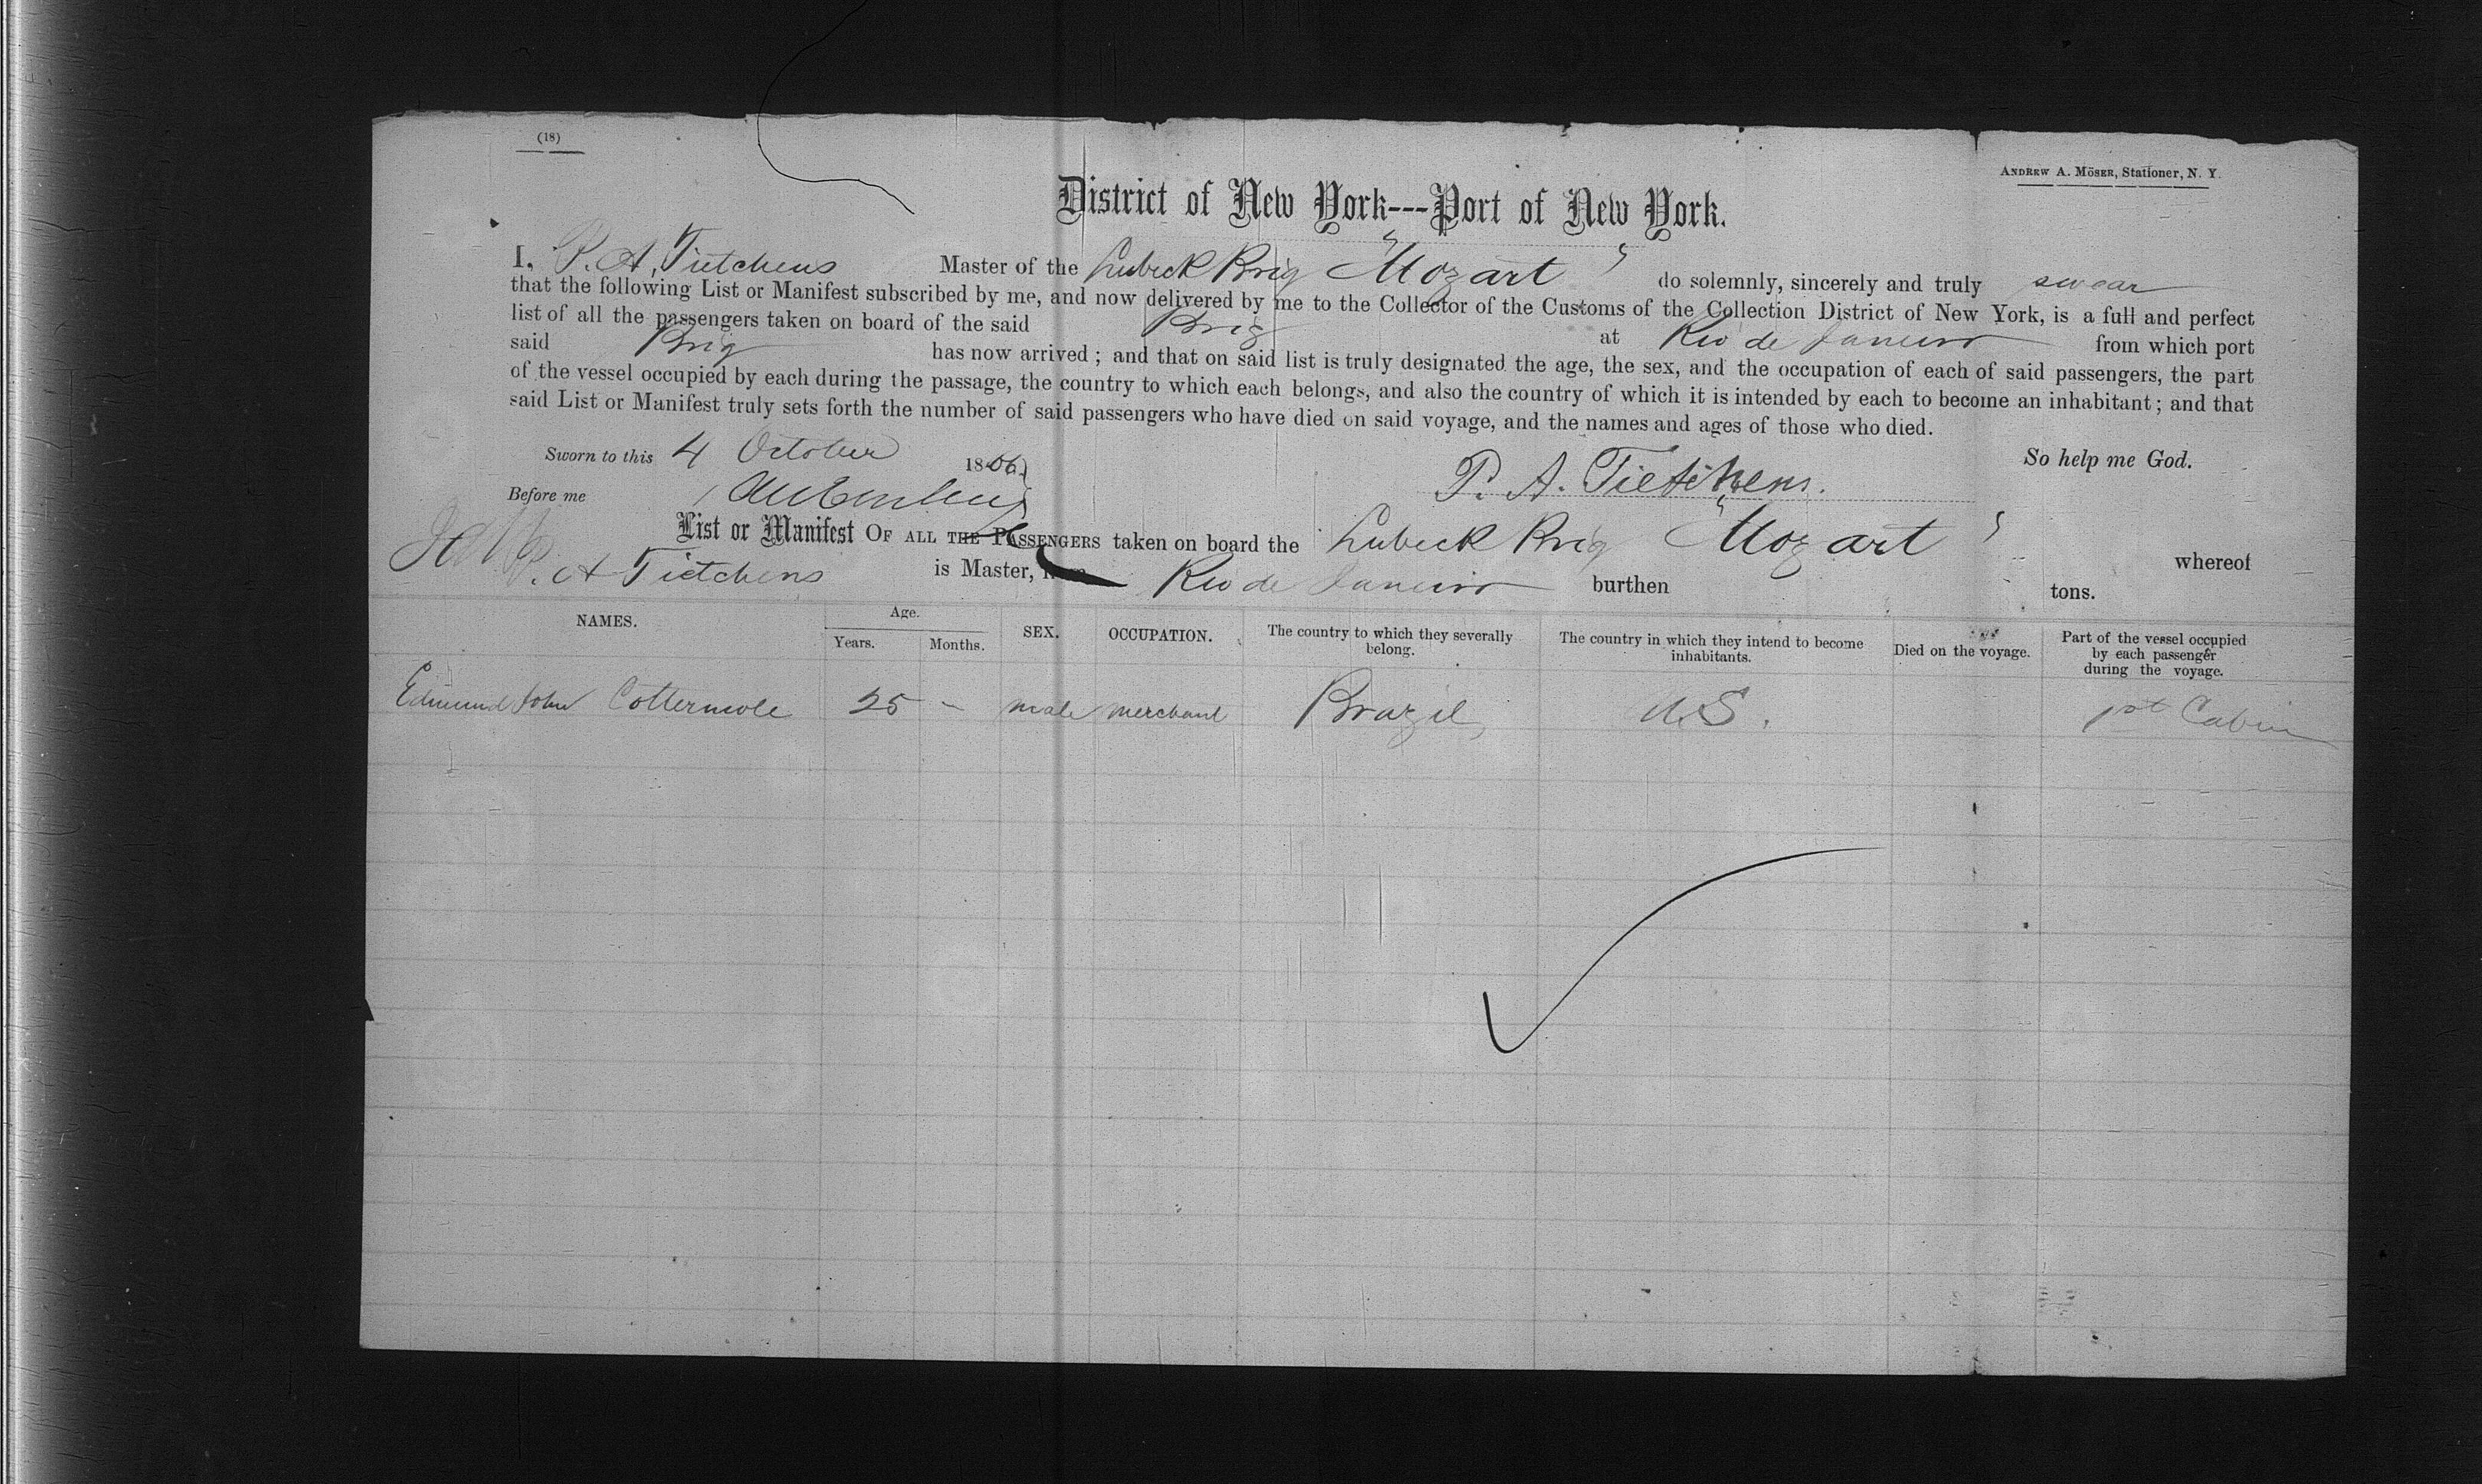 (18)
ANDREW A. MÖSER, Stationer, N. Y.
District of New York---Port of New York.
I, P. A. Tietchens Master of the Lubeck Brig "Mozart" do solemnly, sincerely and truly swear
that the following List or Manifest subscribed by me, and now delivered by me to the Collector of the Customs of the Collection District of New York, is a full and perfect
list of all the passengers taken on board of the said Brig at Rio de Janeiro from which port
said Brig has now arrived; and that on said list is truly designated the age, the sex, and the occupation of each of said passengers, the part
of the vessel occupied by each during the passage, the country to which each belongs, and also the country of which it is intended by each to become an inhabitant; and that
said List or Manifest truly sets forth the number of said passengers who have died on said voyage, and the names and ages of those who died.
Sworn to this 4 October 18 So help me God.
Before me P. A. Tietchens.
List or Manifest OF ALL THE PASSENGERS taken on board the Lubeck Brig "Mozart" whereof
P. A Tietchens is Master, from Rio de Janeiro burthen tons.
NAMES. Age. Years. Months. SEX. OCCUPATION. The country to which they severally belong. The country in which they intend to become inhabitants. Died on the voyage. Part of the vessel occupied by each passenger during the voyage.
Edmund John Cottermole 25 - male merchant Brazil U.S. 1st Cabin